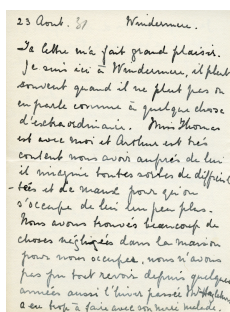 23 Aout. 31 Windermere.
Ta lettre m'a fait grand plaisir.
Je suis ici à Windermere, il pleut
souvent quand il ne pleut pas on
en parle comme à quelque chose
d'extraordinaire. Miss Thomas
est avec moi et Arthur est très
content nous avoir auprès de lui
il imagine toutes sortes de difficul
-tés et de maux pour qu'on
s'occupe de lui un peu plus.
Nous avons trouvés beaucoup de
choses négligées dans la maison
pour nous occuper, nous n'avons
pas pu tout revoir depuis quelques
années aussi l'hiver passée Mrs
a eu trop à faire avec son mari malade.